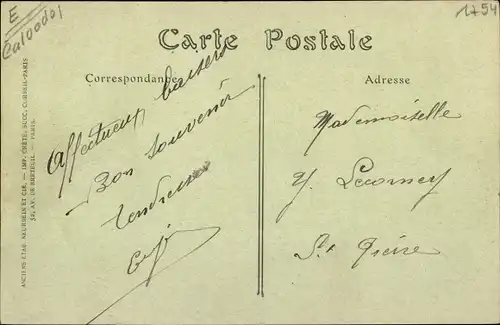 E
Calvados
1754
Carte Postale
Correspondance
Adresse
Affectueux baisers
Bon souvenir
Mademoiselle
Y. Lecorney
St Pierre
ANCIENS ETAB. NEURDEIN ET CIE. — IMP. CRÉTÉ, SUCC. CORBEIL-PARIS
52, AV. DE BRETEUIL — PARIS.